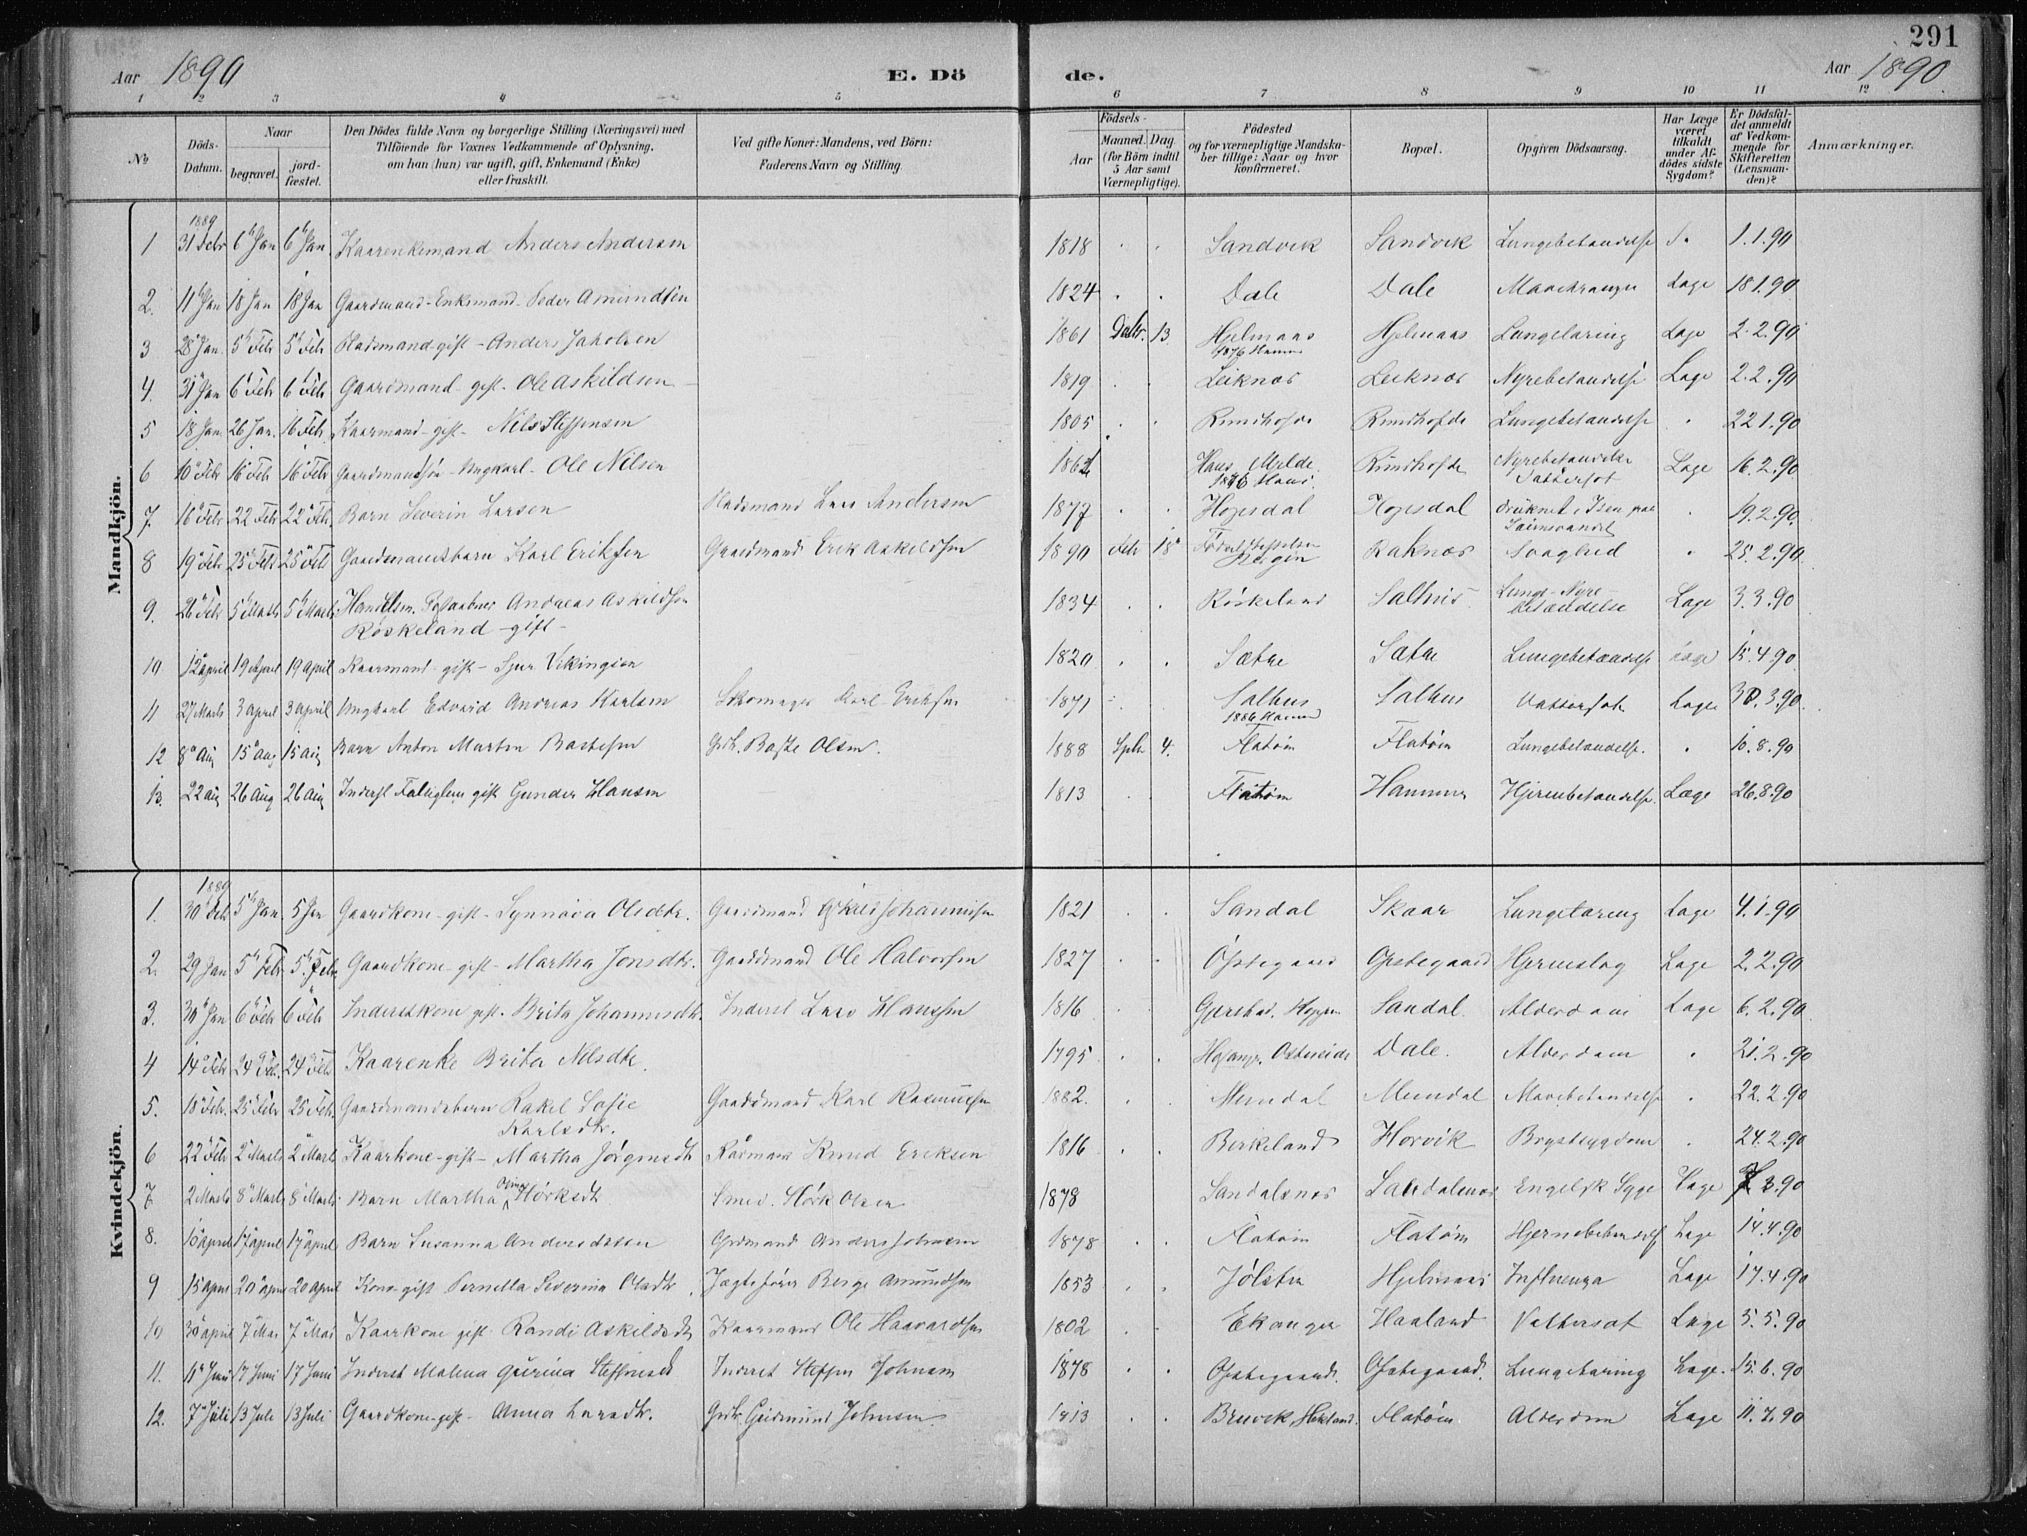 291
Aar 1890 E. Dö de. Aar 1890.
1 2 3 4 5 6 7 8 9 10 11 12
No
Döds-Datum.
Naar
begravet.
jord-fæstet.
Den Dödes fulde Navn og borgerlige Stilling (Næringsvei) med
Tilföiende for Voxnes Vedkommende af Oplysning,
om han (hun) var ugift, gift, Enkemand (Enke)
eller fraskilt.
Ved gifte Koner: Mandens, ved Börn:
Faderens Navn og Stilling.
Födsels-
Aar
Maaned. Dag.
(for Börn indtil
5 Aar samt
Værnepligtige).
Födested
og for værnepligtige Mandska-
ber tillige: Naar og hvor
konfirmeret.
Bopæl.
Opgiven Dödsaarsag.
Har Læge
været
tilkaldt
under Af-
dödes sidste
Sygdom?
Er Dödsfal-
det anmeldt
af Vedkom-
mende for
Skifteretten
(Lensman-
den)?
Anmærkninger.
Mandkjön.
1889
1 31 6 Jan 6 Jan Kaarenkemand Anders Andersen 1818 Sandvik Sandvik Lungebetændelse 1.1.90
2. 11 Jan 18 Jan 18 Jan Gaardmand-Enkemand Peder Amundsen 1824 Dale Dale Læge 18.1.90
3 28 Jan. 5 Feb 5 Feb Pladsmand-gift - Anders Jakobsen 1861 13 Hjelmaas Hjelmaas Lungetæring Læge 2.2.90
1876 Hammer
4. 31 Jan 6 Feb 6 Feb Gaardmand gift. Ole Askildsen 1819 Leiknes Leiknes Nyrebetændelse Læge 2.2.90
5 18 Jan. 26 Jan. 16 Feb. Kaarmand-gift- Nils Steffensen 1805 Lungebetændelse 22.1.90
6 10 Feb 16 Feb 16 Feb Gaardmandssøn-Ungkarl- Ole Nilsen Haus Mjelde. Læge 16.2.90
Vattersot
7. 16 Feb 22 Feb 22 Feb. Barn Severin Larsen Pladsmand Lars Andersen 1877 19.2.90
8 19 Feb 25 Feb 25 Feb Gaardmandsbarn Karl Eriksen Gaardmand Erik Askildsen 1890 Feb 18 Raknes Svaghed 25.2.90
Bergen
9. 26 Feb 5 Marts 5 Marts Andreas Askildsen 1834 Röskeland Salhus Lunge-Nyre Læge 3.3.90
Röskeland -gift- betændelse
10 12 april 19 April 19 april Kaarmand-gift- Sjur Vikingsen 1820 Sætre Sætre Lungebetændelse Læge 15.4.90
11 27 Marts 3 april 3 april Ungkarl Edvard Andreas Karlsen Skomager Karl Eriksen 1871 Salhus Salhus Vattersot Læge 30.3.90
1886 Hammer
12 8 Aug 15 aug 15 aug Barn Anton Martin Bastesen Grdb. Baste Olsen. 1888 Sptb 4. Flatøen Flatøen Lungebetændelse. 10.8.90
13. 22 aug 26 Aug 26 aug Inderst gift Gunder Hansen 1813 Flatøen Hammer Hjernebetændelse. Læge 26.8.90
Kvindekjön.
1889
1. 30 5 Jan. 5 Jan Gaardkone-gift- Synnøva Olsdtr. Gaardmand Johannesen 1821 Sandal Skaar Lungetæring Læge 4.1.90
2. 29 Jan 5 Feb 5 Feb Gaardkone-gift- Martha Jonsdtr. Gaardmand Ole Halvorsen 1827 Østegaard Østegaard Læge 2.2.90
3. 30 Jan 6 Feb 6 Feb Inderstkone gift. Brita Johannesdtr. Inderst Lars Hanssen 1816 Sandal. Alderdom Læge 6.2.90
4 14 Feb 24 Feb. 24 Feb Kaarenke Brita Nilsdtr. 1795 Dale. Alderdom 21.2.90
5. 18 Feb. 25 Feb 25 Feb. Gaardmandsbarn Rakel Sofie Gaardmand Karl Rasmussen 1882. Mundal Mundal Mavebetændelse 22.2.90
Karlsdtr.
6 22 Feb 2 Marts 2 Marts Kaarkone-gift- Martha Jørgensdtr Kårmand Knud Eriksen 1816 Birkeland Horvik Brystsygdom 24.2.90
7 2 Marts 8 Marts 8 Marts Barn Martha Størksdtr Smed. Størk Olsen 1878 Sandalsnes Sandalsnes Engelsk Syge Læge 3.90
8. 10 april 17 april 17 april Barn Susanna Andersdatter Grdmand Anders Johnsen 1878 Flatøen Flatøen Hjernebetændelse Læge 14.4.90
9 15 april 20 april 20 april Kone-gift Pernella Severina Olsdtr. Jægtefører Berge Amundsen 1853 Jølster Hjelmaas Influenza Læge 17.4.90
10 30 april 7 Mai 7 Mai Kaarkone gift- Randi Askildsdtr Kaarmand Ole Haavardsen 1802 Ekanger Haaland Vattersot Læge 5.5.90
11. 11 Juni 17 Juni 17 Juni Inderst Malena Steffensdt Inderst Steffen Johnsen 1878 Østegaard. Østegaard. Lungetæring Læge. 15.6.90
12. 7 Juli 13 Juli 13 Juli Gaardkone-gift- Anna Larsdtr. Grdb. Gudmund Johnsen 1813 Bruvik Flatøen Alderdom Læge 11.7.90